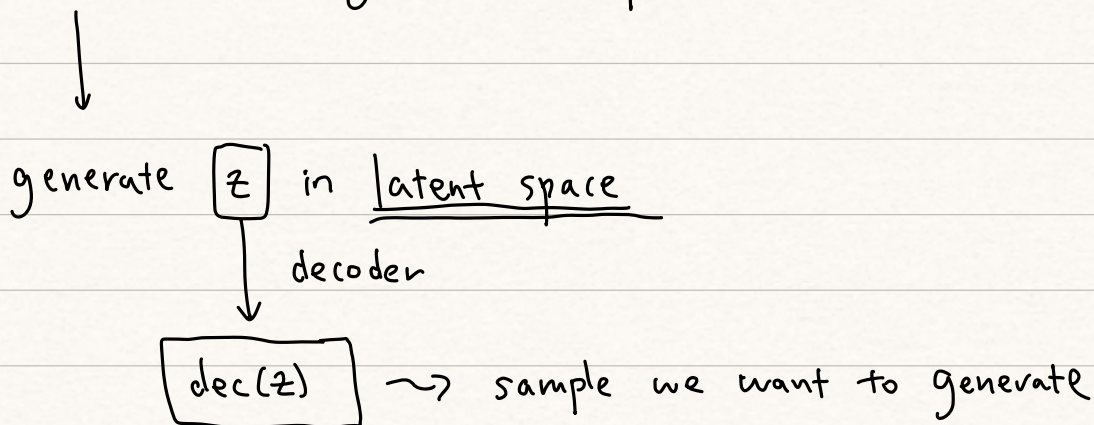 generate z in latent space
decoder
dec(z) ⇝ sample we want to generate